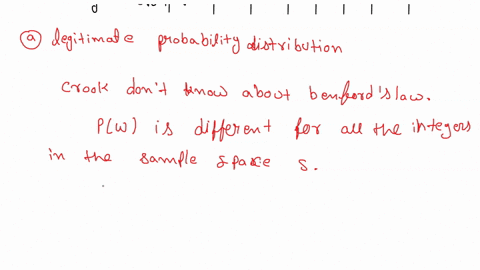 (a) legitimate probability distribution
Crook don't know about benford's law.
P(w) is different for all the integers
in the sample space S.